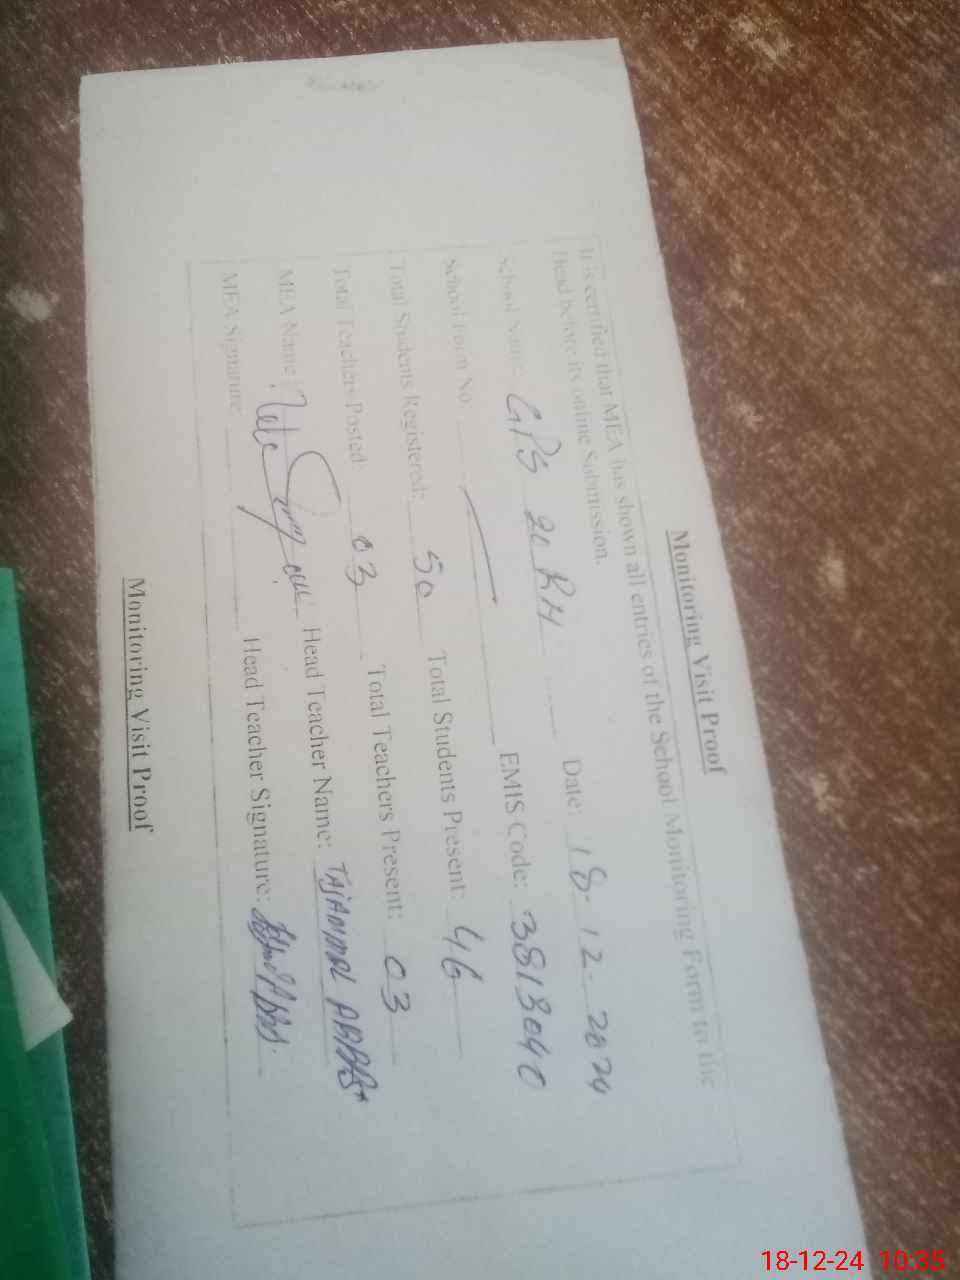 Monitoring Visit Proof
It is certified that MEA has shown all entries of the School Monitoring Form to the
Head before its online Submission.
School Name: GPS 20 RH Date: 18-12-2024
School Form No. EMIS Code: 38130040
Total Students Registered: 50 Total Students Present: 46
Total Teachers Posted: 03 Total Teachers Present: 03
MEA Name: Head Teacher Name: TAJAMMAL ABBAS
MEA Signature: Head Teacher Signature:
Monitoring Visit Proof
18-12-24 10:35